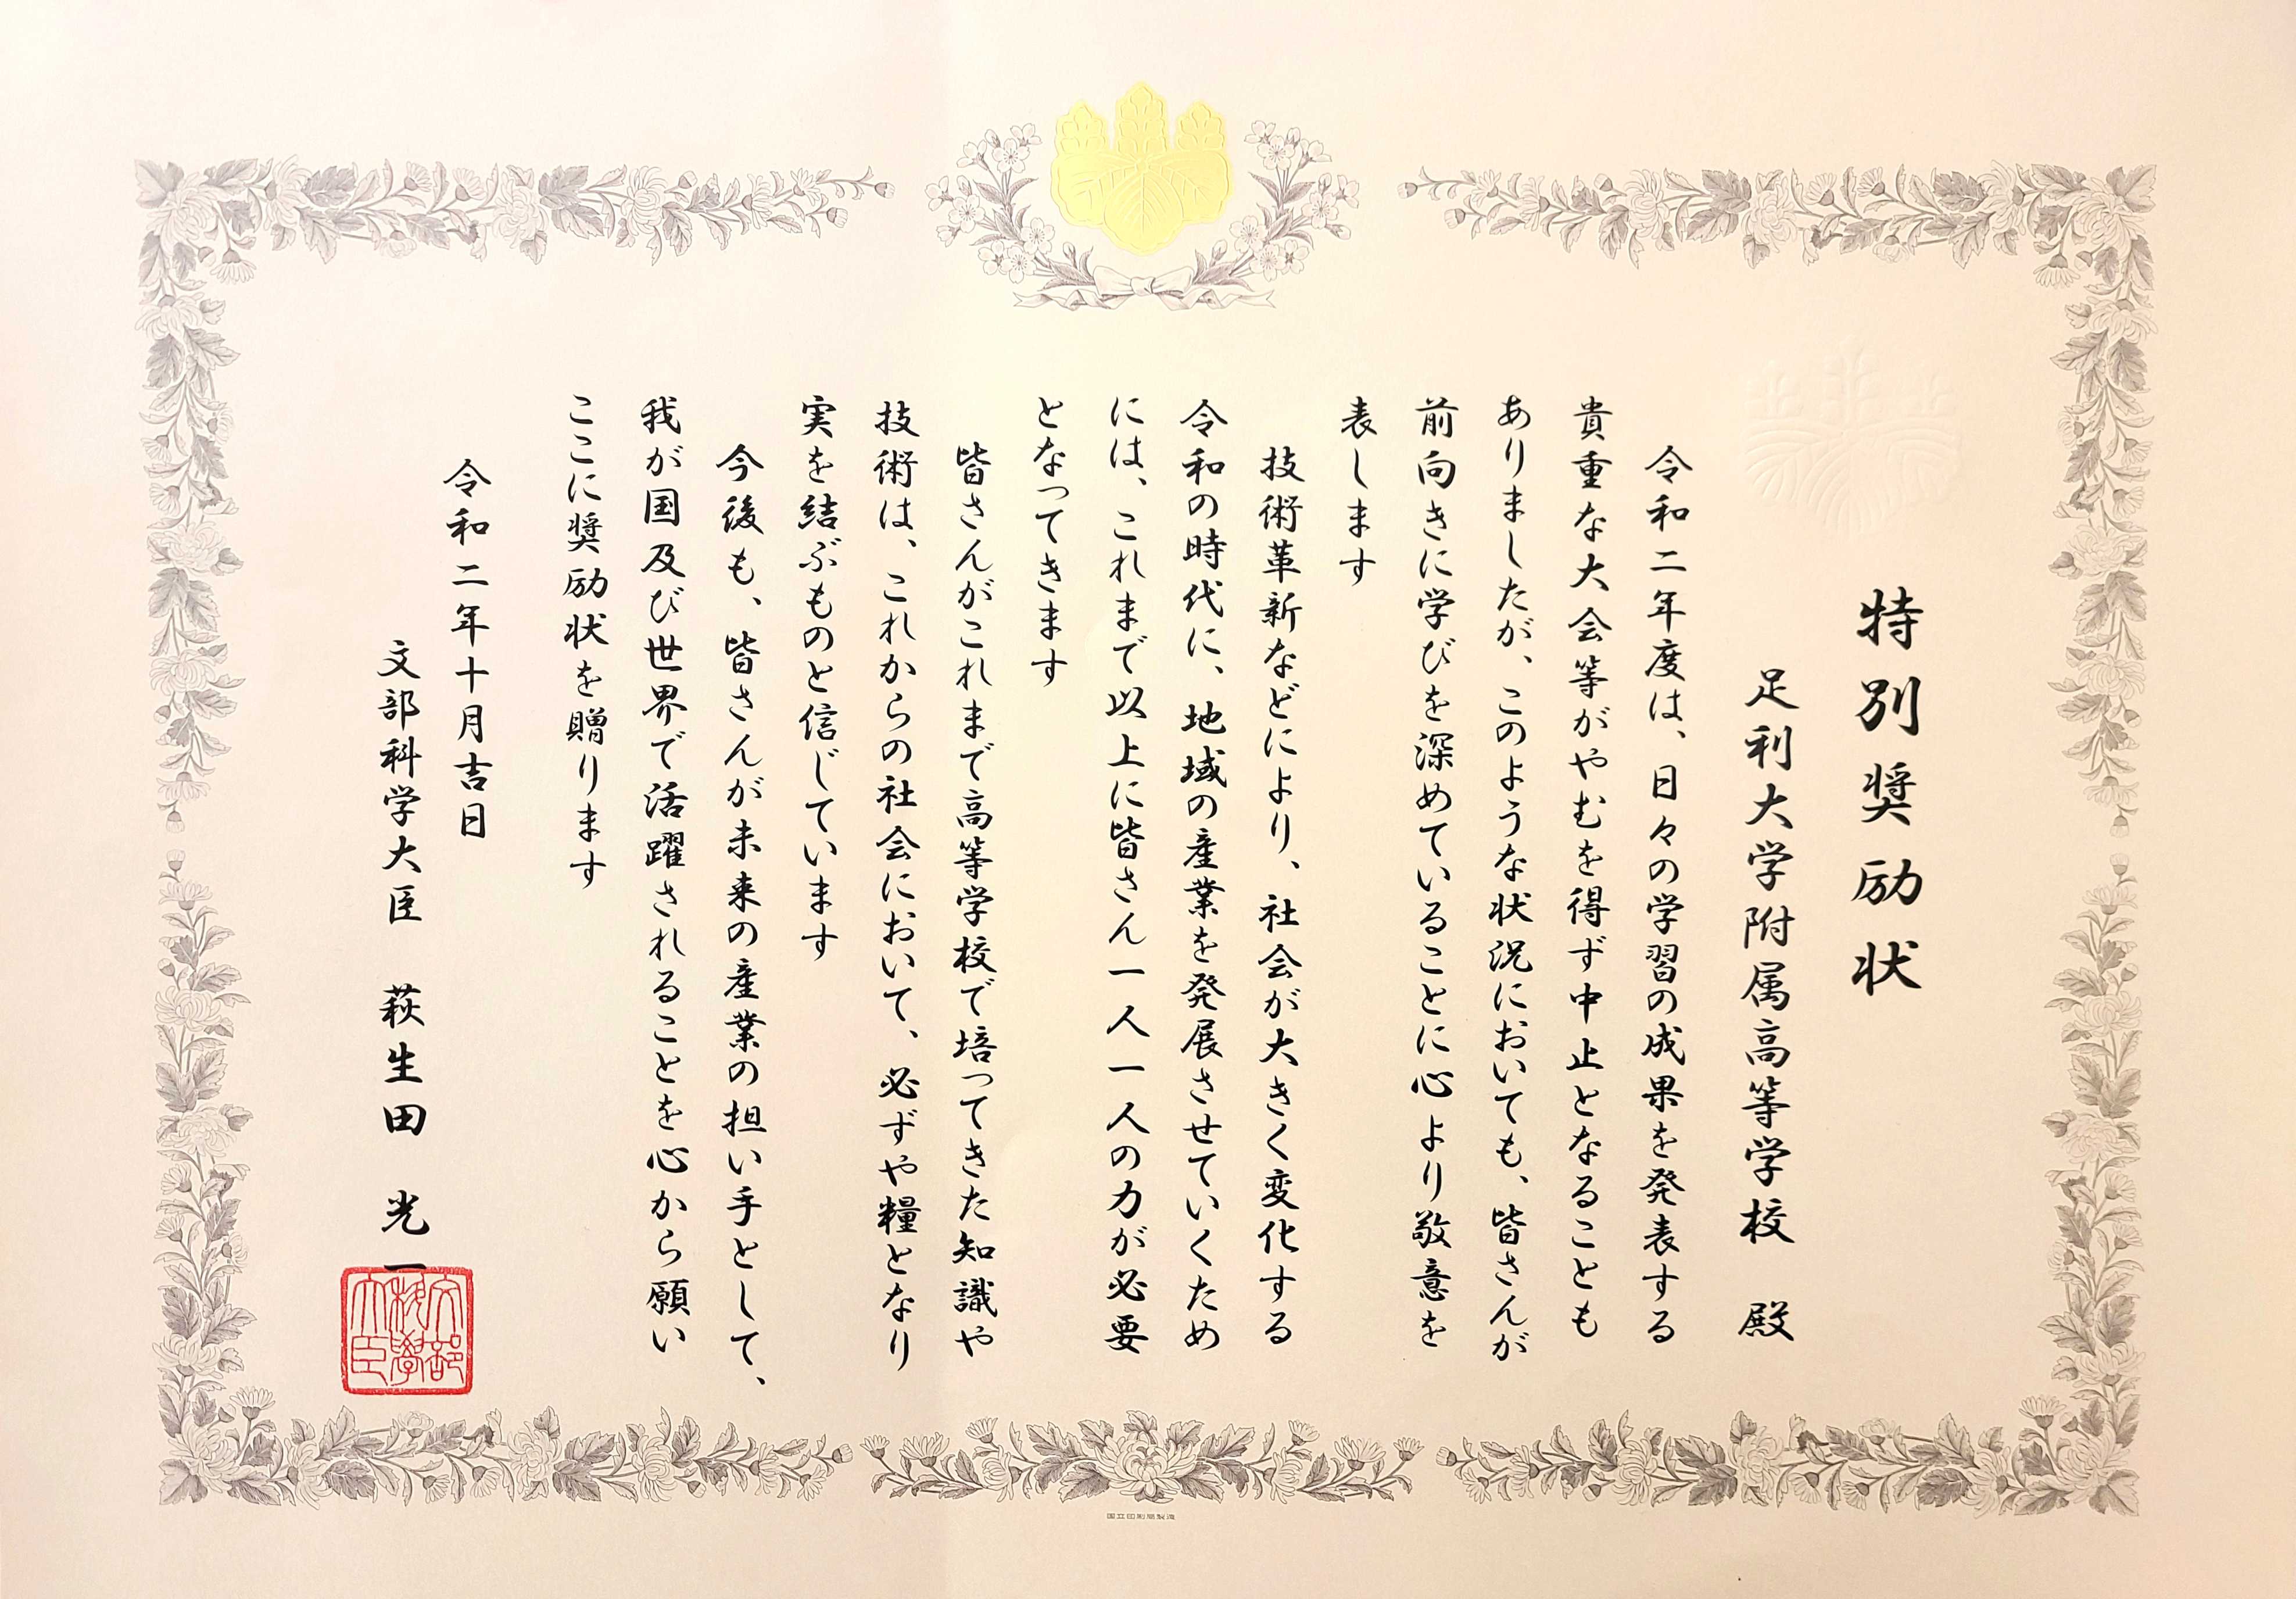 特別奨励状
足利大学附属高等学校 殿
令和二年度は、日々の学習の成果を発表する
貴重な大会等がやむを得ず中止となることも
ありましたが、このような状況においても、皆さんが
前向きに学びを深めていることに心より敬意を
表します
技術革新などにより、社会が大きく変化する
令和の時代に、地域の産業を発展させていくため
には、これまで以上に皆さん一人一人の力が必要
となってきます
皆さんがこれまで高等学校で培ってきた知識や
技術は、これからの社会において、必ずや糧となり
実を結ぶものと信じています
今後も、皆さんが未来の産業の担い手として、
我が国及び世界で活躍されることを心から願い
ここに奨励状を贈ります
令和二年十月吉日
文部科学大臣 萩生田 光一
文部科學大臣
国立印刷局製造